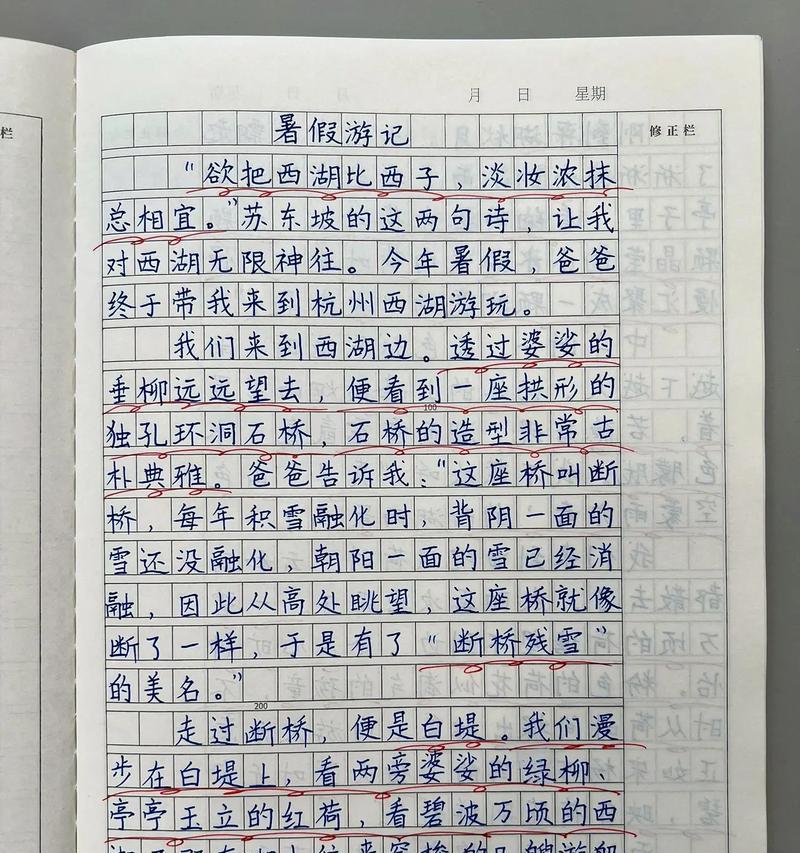 栏
月 日 星期
修正栏
暑假游记
“欲把西湖比西子，淡妆浓抹
总相宜。”苏东坡的这两句诗，让我
对西湖无限神往。今年暑假，爸爸
终于带我来到杭州西湖游玩。
我们来到西湖边。透过婆娑的
垂柳远远望去，便看到一座拱形的
100
独孔环洞石桥，石桥的造型非常古
朴典雅。爸爸告诉我：“这座桥叫断
桥，每年积雪融化时，背阴一面的
雪还没融化，朝阳一面的雪已经消
融，因此从高处眺望，这座桥就像
断了一样，于是有了“断桥残雪”
的美名。”
200
走过断桥，便是白堤。我们漫
步在白堤上，看两旁婆娑的绿柳、
亭亭玉立的红荷，看碧波万顷的西